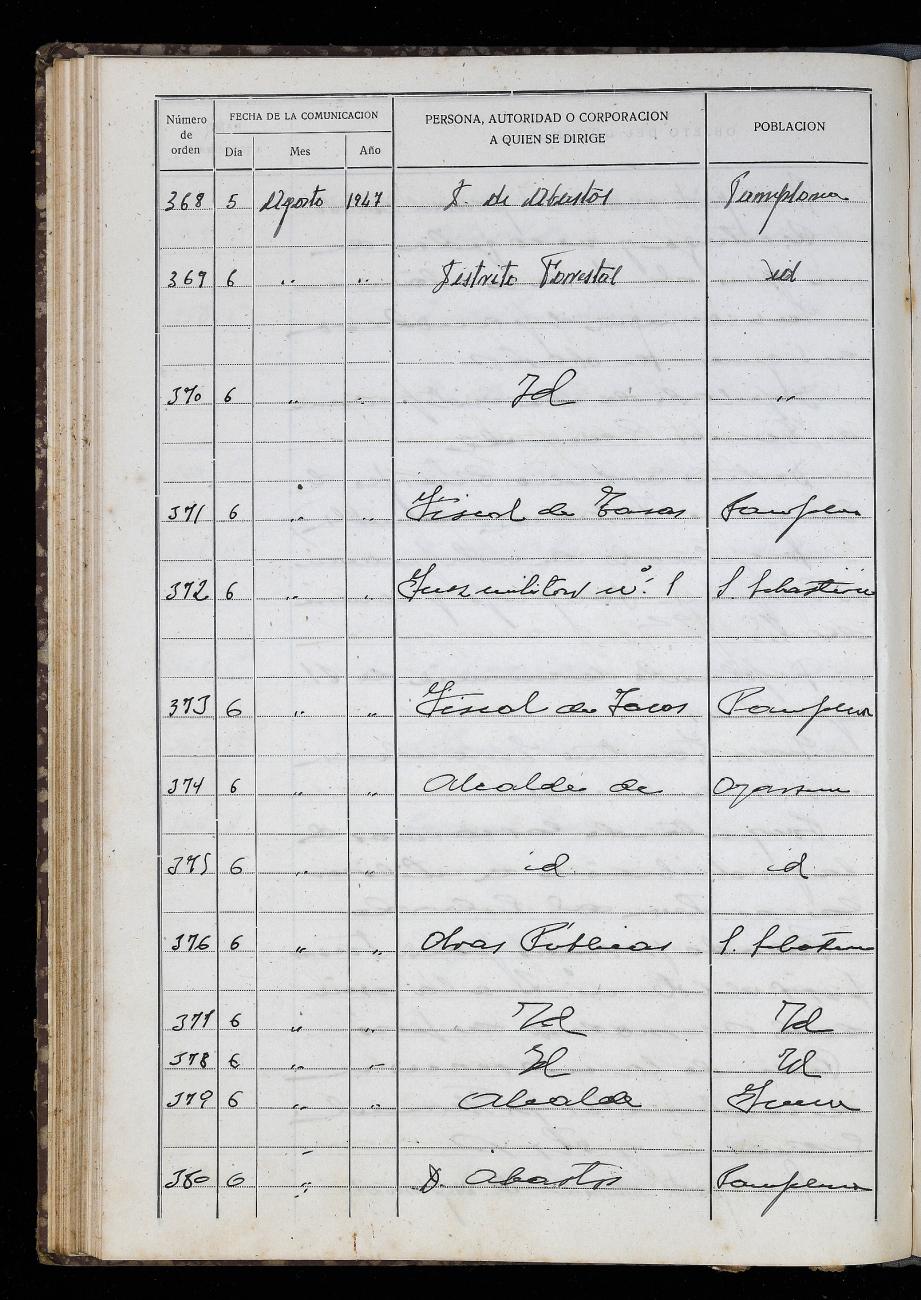 Número de orden FECHA DE LA COMUNICACION PERSONA, AUTORIDAD O CORPORACION A QUIEN SE DIRIGE POBLACION
Día Mes Año
368 5 Agosto 1947 D. de Abastos Pamplona
369 6 " " Distrito Forestal id
370 6 " " Id "
371 6 " " Fiscal de Tasas Pamplona
372 6 " " Juez militar nº. 1 S. Sebastian
373 6 " " Fiscal de Tasas Pamplona
374 6 " " Alcalde de Oyarzun
375 6 " " id id
376 6 " " Obras Publicas S. Sebastian
377 6 " " Id Id
378 6 " " Id Id
379 6 " " Alcalde
380 6 " D. Abastos Pamplona